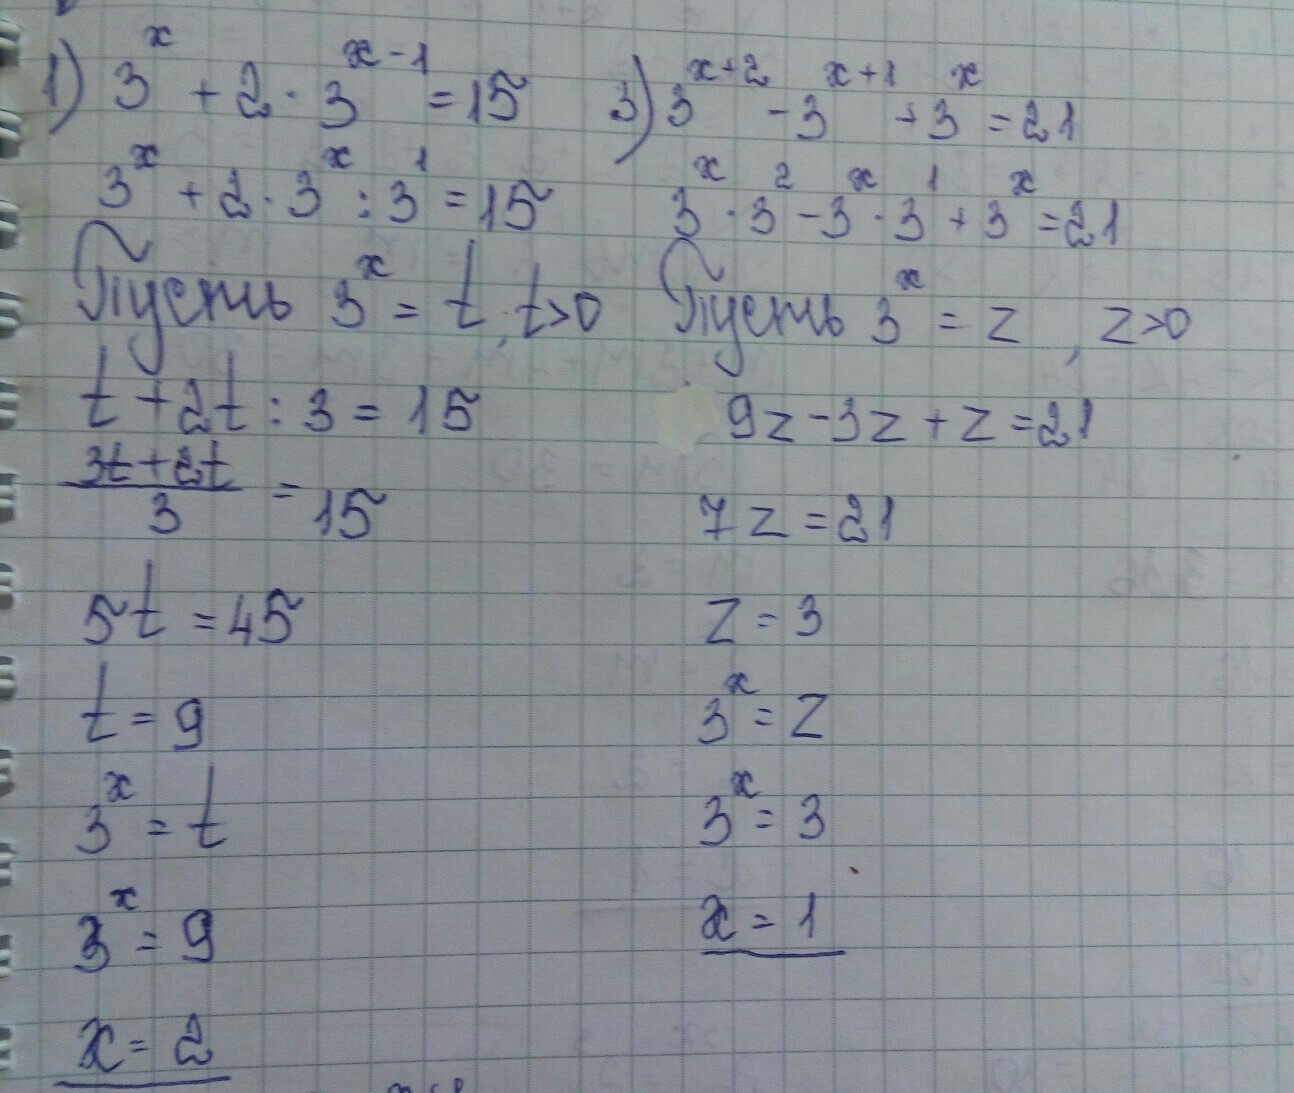 1) 3^x + 2 · 3^(x-1) = 15
3^x + 2 · 3^x : 3^1 = 15
Пусть 3^x = t, t>0
t + 2t : 3 = 15
(3t+2t)/3 = 15
5t = 45
t = 9
3^x = t
3^x = 9
x = 2
3) 3^(x+2) - 3^(x+1) + 3^x = 21
3^x · 3^2 - 3^x · 3^1 + 3^x = 21
Пусть 3^x = z, z>0
9z - 3z + z = 21
7z = 21
z = 3
3^x = z
3^x = 3
x = 1